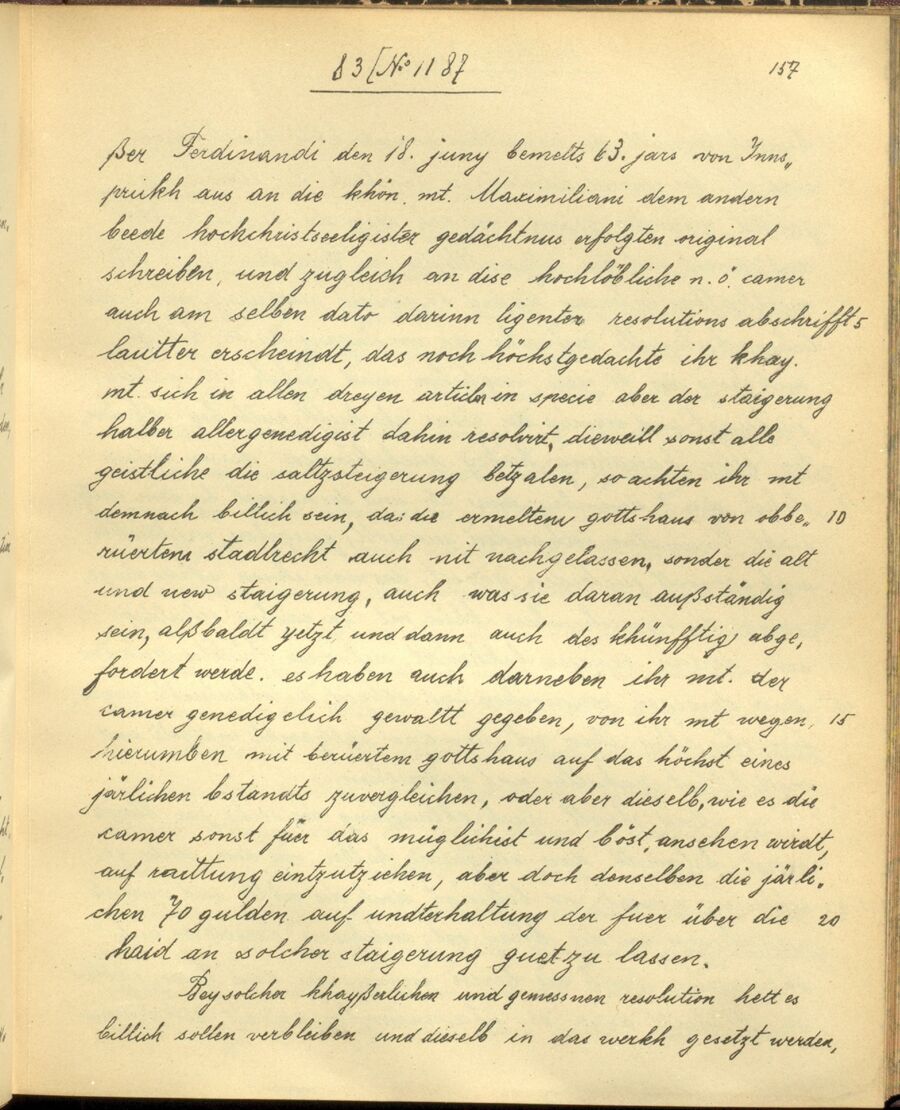 83/No 1187
157
ßer Ferdinandi den 18. juny bemelts 63. jars von Inns„
prukh aus an die khön. mt. Maximiliani dem andern
beede hochchristseeligister gedächtnus erfolgten original
schreiben, und zugleich an dise hochlöbliche n. ö. camer
auch am selben dato darinn ligenter resolutions abschrifft 5
lautter erscheindt, das noch höchstgedachte ihr khay.
mt. sich in allen dreyen articln in specie aber der staigerung
halber allergenedigist dahin resolvirt, dieweill sonst alle
geistliche die saltzsteigerung betzalen, so achten ihr mt
demnach billich sein, das die ermelten gottshaus von obbe„ 10
rüertem stadlrecht auch nit nachgelassen, sonder die alt
und new staigerung, auch was sie daran außständig
sein, alßbaldt yetzt und dann auch des khünfftig abge„
fordert werde. es haben auch darneben ihr mt. der
camer genedigelich gewaltt gegeben, von ihr mt wegen, 15
hierumben mit berüertem gottshaus auf das höchst eines
järlichen bstandts zuvergleichen, oder aber dieselb, wie es die
camer sonst füer das müglichist und böst, ansehen wirdt,
auf raittung eintzutziehen, aber doch denselben die järli„
chen 70 gulden auf undterhaltung der fuer über die 20
haid an solcher staigerung guet zu lassen.
Bey solcher khayßerlichen und gemessnen resolution hett es
billich sollen verbleiben und dieselb in das werkh gesetzt werden,